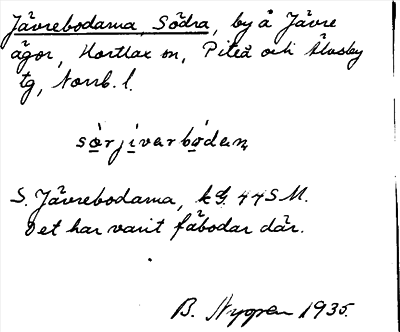 Jävrebodarna, Södra, by å Jävre
ägor, Hortlax sn, Piteå och Älvsby
tg, Norrb. l.
sö̀rjivarbodan
S. Jävrebodarna, kG. 44S M.
Det har varit fäbodar där.
B. Nygren 1935.